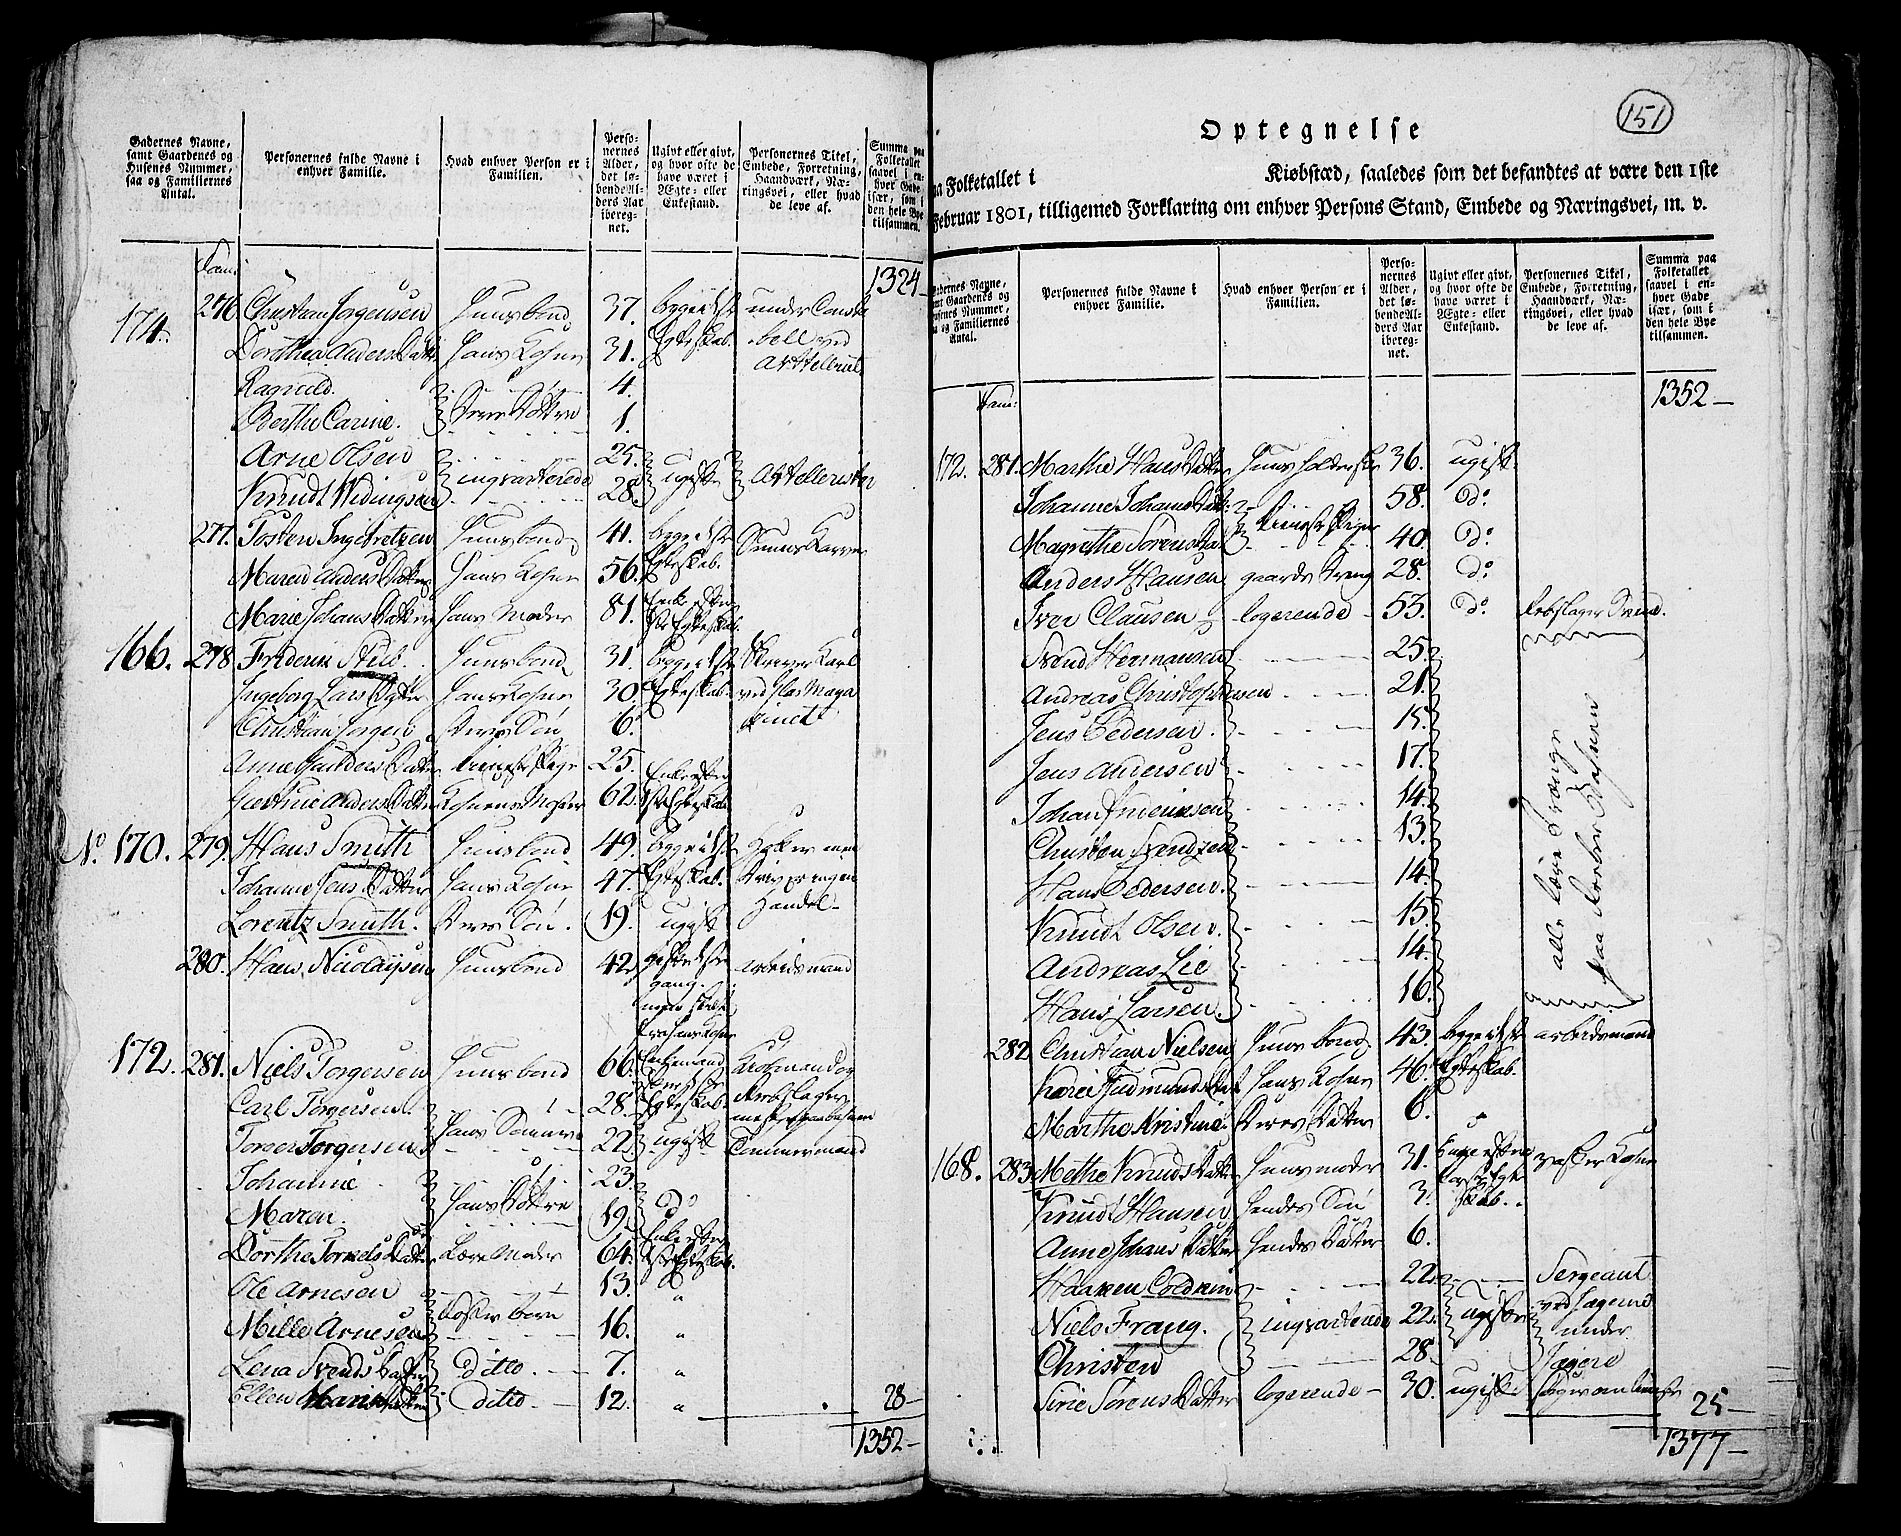 Gadernes Navne, samt Gaardenes og Husenes Nummer, saa og Familiernes Antal.
Personernes fulde Navne i enhver Familie.
Hvad enhver Person er i Familien.
Personernes Alder, det løbende Alders Aar iberegnet.
Ugivt eller givt, og hvor ofte de have været i Ægte- eller Enkestand.
Personernes Titel, Embede, Forretning, Haandværk, Næringsvei, eller hvad de leve af.
Summa paa Folketallet saavel i enhver Gade især, som i den hele Bye tilsammen.
Fam:
1324
174. 276 Christian Jorgensen Huusbond 37. begge i 1ste under Consta
Dorothea Anders Datter Hans Kohne 31. Egteskab. bell ved
Ragnild. 4. Artelleriet
Berthe Carine. Deres Døttre 1.
Arne Olsen 25.
inqvarterede ugifte Artellerister
Knudt 28.
277. Tosten Ingebretsen Huusbond 41. begge i 1ste
Maren Anders Datter Hans Kohne 56. Egteskab.
Marie Johans Datter Hans Moder 81. Enke efter
1ste Egteskab.
166. 278 Friderik Stub. Huusbond 31. begge i 1ste Karl
Ingeborg Lars Datter Hans Kohne 30. Egteskab. ved
Christian Jorgen Deres Søn 6.
Anne Datter tieneste Pige 25.
Anders Datter Kohnens Moder 62. Enke efter
1ste Egteskab
No. 170. 279. Hans Smith Huusbond 49. begge i 1ste Høker men
Johanne Jens Datter Hans Kohne 47. Egteskab. driver ingen
Lorentz Smith. Deres Søn. 19. ugift Handel
280. Hans Nicolaysen Huusbond 42. gift 1ste arbeidsmand
gang.
fra hans Kohne
172. 281. Niels Torgersen Huusbond 66. Enkemand
Carl Torgersen. 28. Egteskab. Rebslager
Hans Sønner
Torger Torgersen 22. ugift Tømmermand
Johanne 23.
Hans Døttre
Maren. 19. do
Dorthe Datter Moder 64. Enke efter
1ste Egteskab.
Ole Arnesen 13. "
Foster børn
Mille Arnesen 16. "
Lena Svends Datter ditto. 7. "
Ellen Hans Datter ditto. 12. " 28
1352
151
Optegnelse
aa Folketallet i Kiøbstæd, saaledes som det befandtes at være den 1ste
Februar 1801, tilligemed Forklaring om enhver Persons Stand, Embede og Næringsvei, m. v.
Gadernes Navne, samt Gaardenes og Husenes Nummer, saa og Familiernes Antal.
Personernes fulde Navne i enhver Familie.
Hvad enhver Person er i Familien.
Personernes Alder, det løbende Alders Aar iberegnet.
Ugivt eller givt, og hvor ofte de have været i Ægte- eller Enkestand.
Personernes Titel, Embede, Forretning, Haandværk, Næringsvei, eller hvad de leve af.
Summa paa Folketallet saavel i enhver Gade især, som i den hele Bye tilsammen.
Fam:
1352
172. 281. Marthe Hans Datter Huusholderske 36. ugift
Johanne Johans Datt: 58. do
tieneste Piger
Magrethe Sørens Da. 40. do
Anders Hansen gaards Dreng 28. do
Iver Clausen logerende 53. do Rebslager Svend.
Svend Hermansen 25.
Andreas Christophersen 21.
Jens Pedersen. 15.
Jens Andersen 17.
Johan Friderichsen 14.
Christen Svendsen 13.
Hans Pedersen. 14.
Knudt Olsen. 15.
Andreas Lie 14.
Hans Larsen. 16.
alle lære Drenge
paa Reeber Bahnen
282 Christian Nielsen Huusbond 43. begge i 1ste arbeidsmand
Karei Gudmunds Dat Hans Kohne 46. Egteskab.
Marthe Kristine. Deres Datter 6. "
168. 283. Methe Knuds Datter Huusmoder 31. Enke efter vasker Kohne
Knudt Hansen hendes Søn 3. 1ste Egte
Anne Hans Datter hendes Datter 6. skab.
Haagen Coldevin 22. Sergeant
Niels Frang. inqvarterede 22. ugifte ved Jægerne
under
Christen 28. Jægere
Sirie Sørens Datter logerende 30. ugift 25
1377